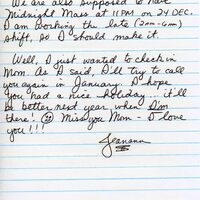 We are also supposed to have
Midnight Mass at 11PM on 24 DEC.
I am working the late (2am-6am)
shift, so I should make it.
Well, I just wanted to check in
Mom. As I said, I'll try to call
you again in January. I hope
you had a nice holiday... it'll
be better next year when I'm
there! Miss you Mom - I love
you!!!
Jeanann